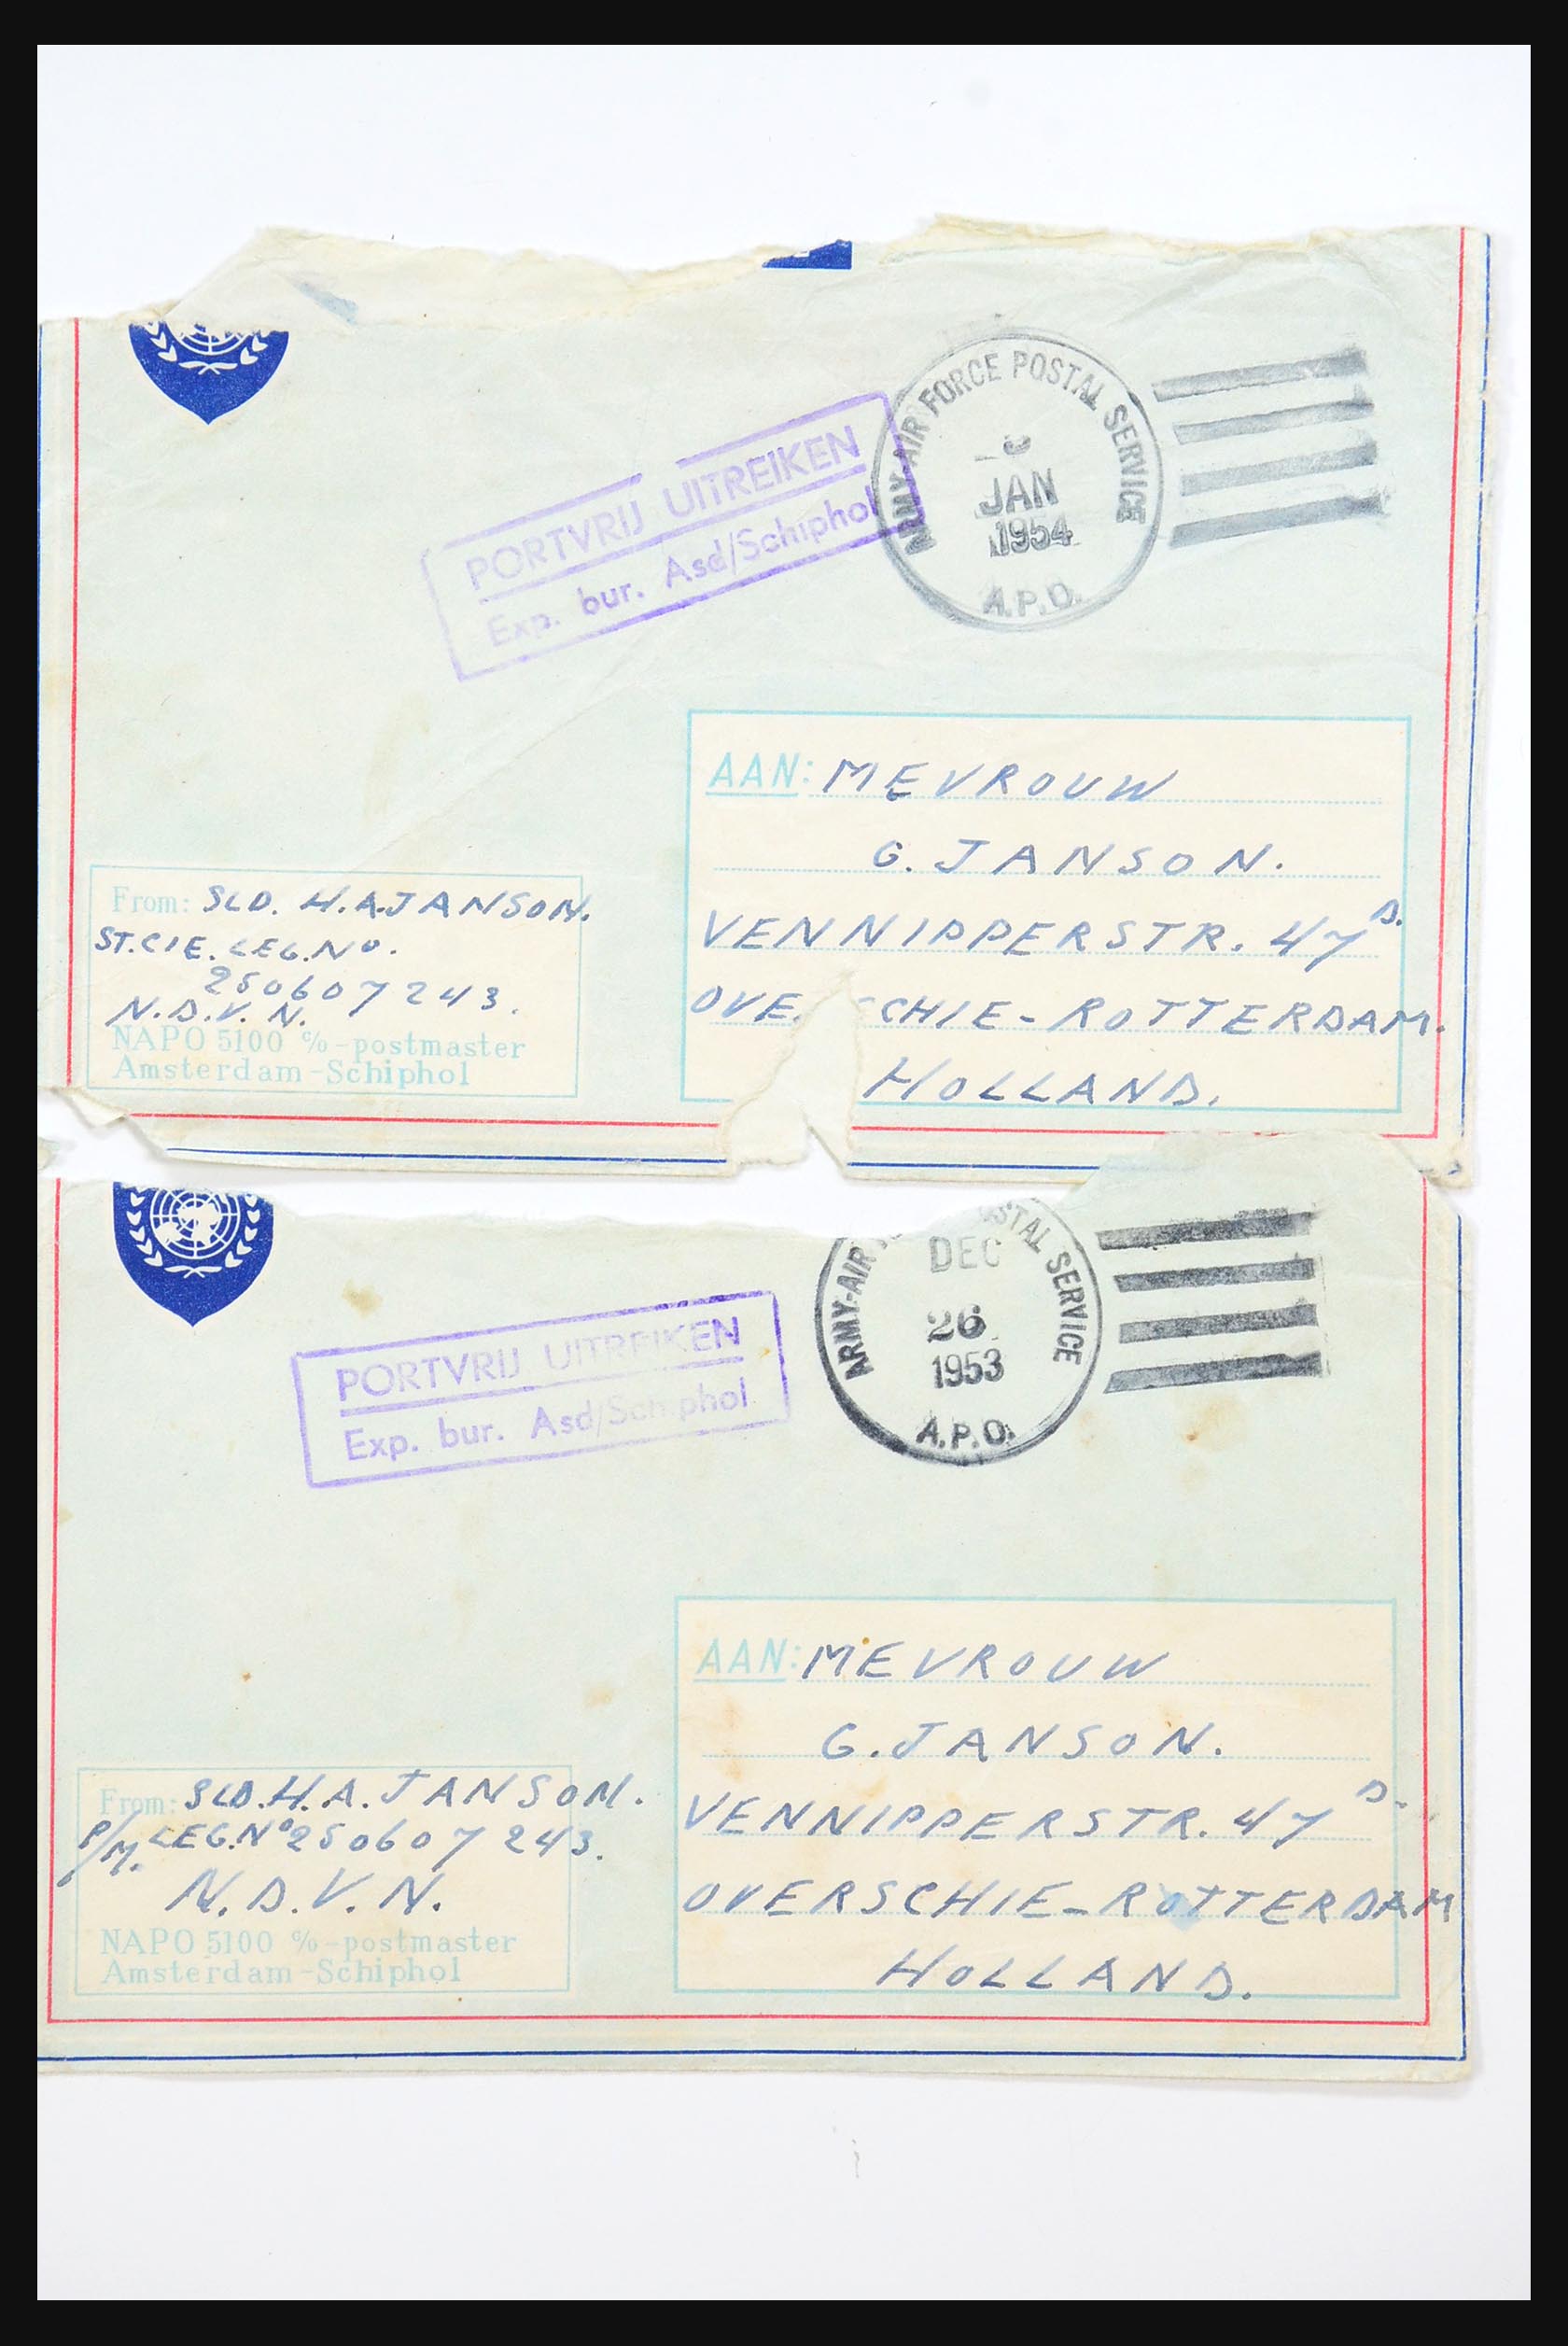 ARMY-AIR FORCE POSTAL SERVICE
JAN
1954
A.P.O.
PORTVRIJ UITREIKEN
Exp. bur. Asd/Schiphol
AAN: MEVROUW
G. JANSON.
VENNIPPERSTR. 47 D.
OVE. CHIE-ROTTERDAM.
HOLLAND.
From: SLD. H.A.JANSON.
ST.CIE. LEG.No.
250607243.
N.D.V.N.
NAPO 5100 %-postmaster
Amsterdam-Schiphol
ARMY-AIR OSTAL SERVICE
DEC
26
1953
A.P.O.
PORTVRIJ UITREIKEN
Exp. bur. Asd/Schiphol
AAN: MEVROUW
G. JANSON.
VENNIPPERSTR. 47 D.
OVERSCHIE-ROTTERDAM
HOLLAND.
From: SLD. H.A. JANSON.
P/M. LEG.No 250607243.
N.D.V.N.
NAPO 5100 %-postmaster
Amsterdam-Schiphol